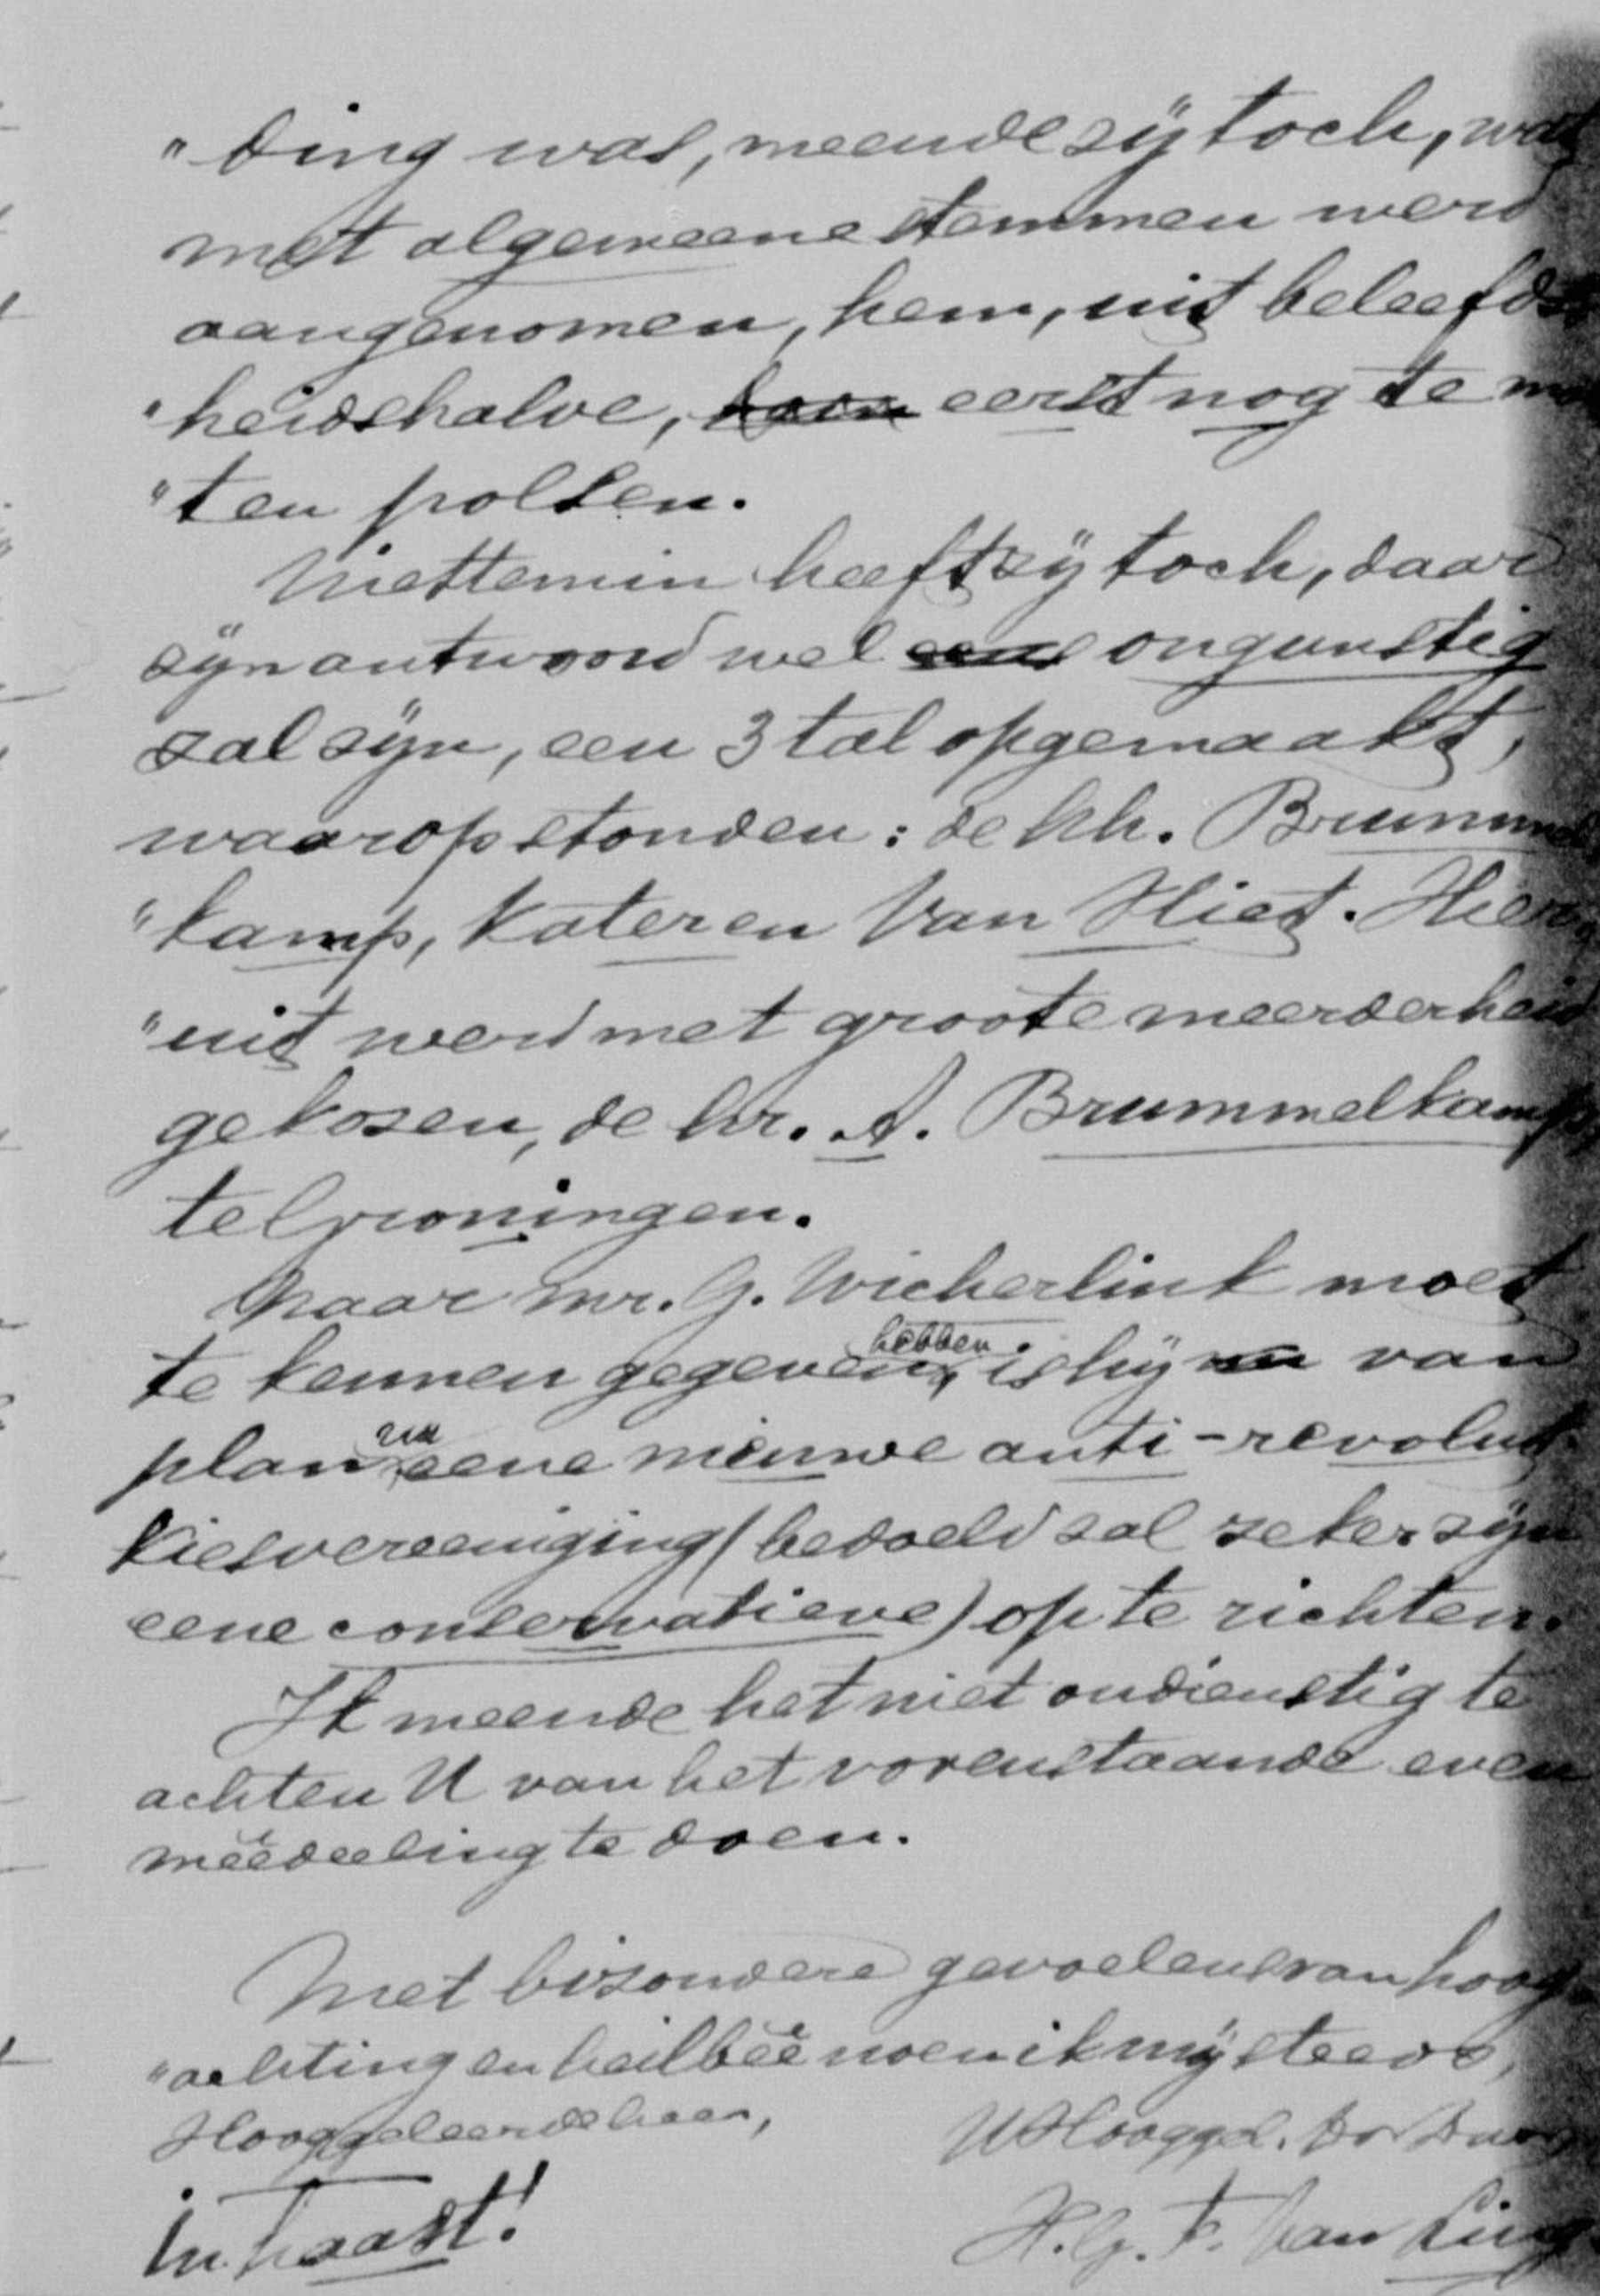 „ding was, meende zij toch, wat
met algemeene stemmen werd
aangenomen, hem, uit beleefd„
„heidshalve, eerst nog te moe
„ten polsen.
Niettemin heeft zij toch, daar
zijn antwoord wel ongunstig
zal zijn, een 3 tal opgemaakt,
waarop stonden: de hh. Brummel
„kamp, Kater en Van Vliet. Hier„
„uit werd met groote meerderheid
gekozen, de hr. A. Brummelkamp,
te Groningen.
Naar mr. G. Wicherlink moet
te kennen gegeven hebben, is hij van
plan nu eene nieuwe anti-revolut.
kiesvereeniging (bedoeld zal zeker zijn
eene conservatieve) op te richten.
Ik meende het niet ondienstig te
achten U van het vorenstaande even
meêdeeling te doen.
Met bizondere gevoelens van hoog
„achting en heilbêe noem ik mij steeds,
Hooggeleerde heer,
UHooggel. Dw Dnr
In haast!
H. G. F. Van Ling